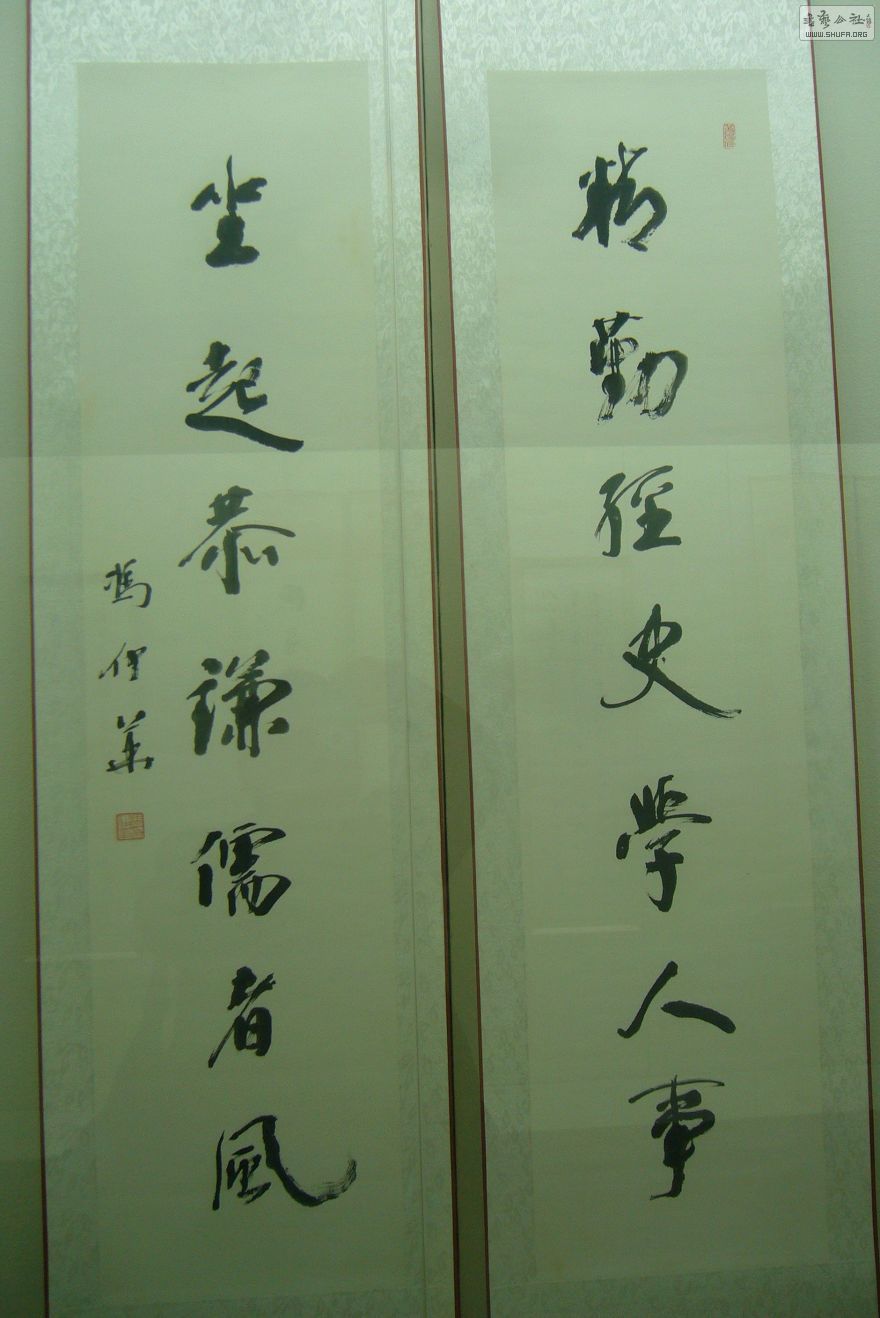 精勤經史學人事
坐起恭謙儒者風
馮仲華
書藝公社
WWW.SHUFA.ORG